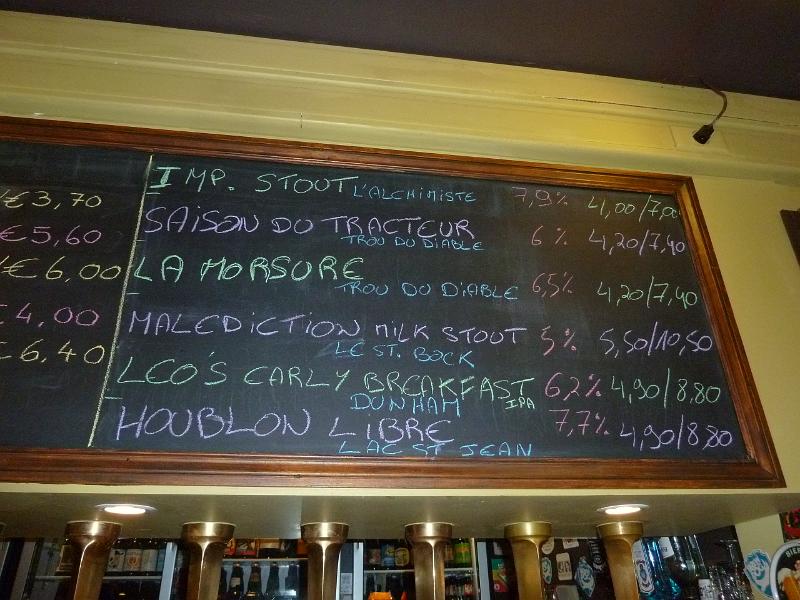 €3,70
€5,60
€6,00
€4,00
€6,40
IMP. STOUT L'ALCHIMISTE 7,9% 4,00/7,00
SAISON DU TRACTEUR 6% 4,20/7,40
TROU DU DIABLE
LA MORSURE 6,5% 4,20/7,40
TROU DU DIABLE
MALEDICTION MILK STOUT 5% 5,50/10,50
LE ST. BOCK
LEO'S EARLY BREAKFAST 6,2% 4,90/8,80
DUNHAM IPA
HOUBLON LIBRE 7,7% 4,90/8,80
LAC ST JEAN